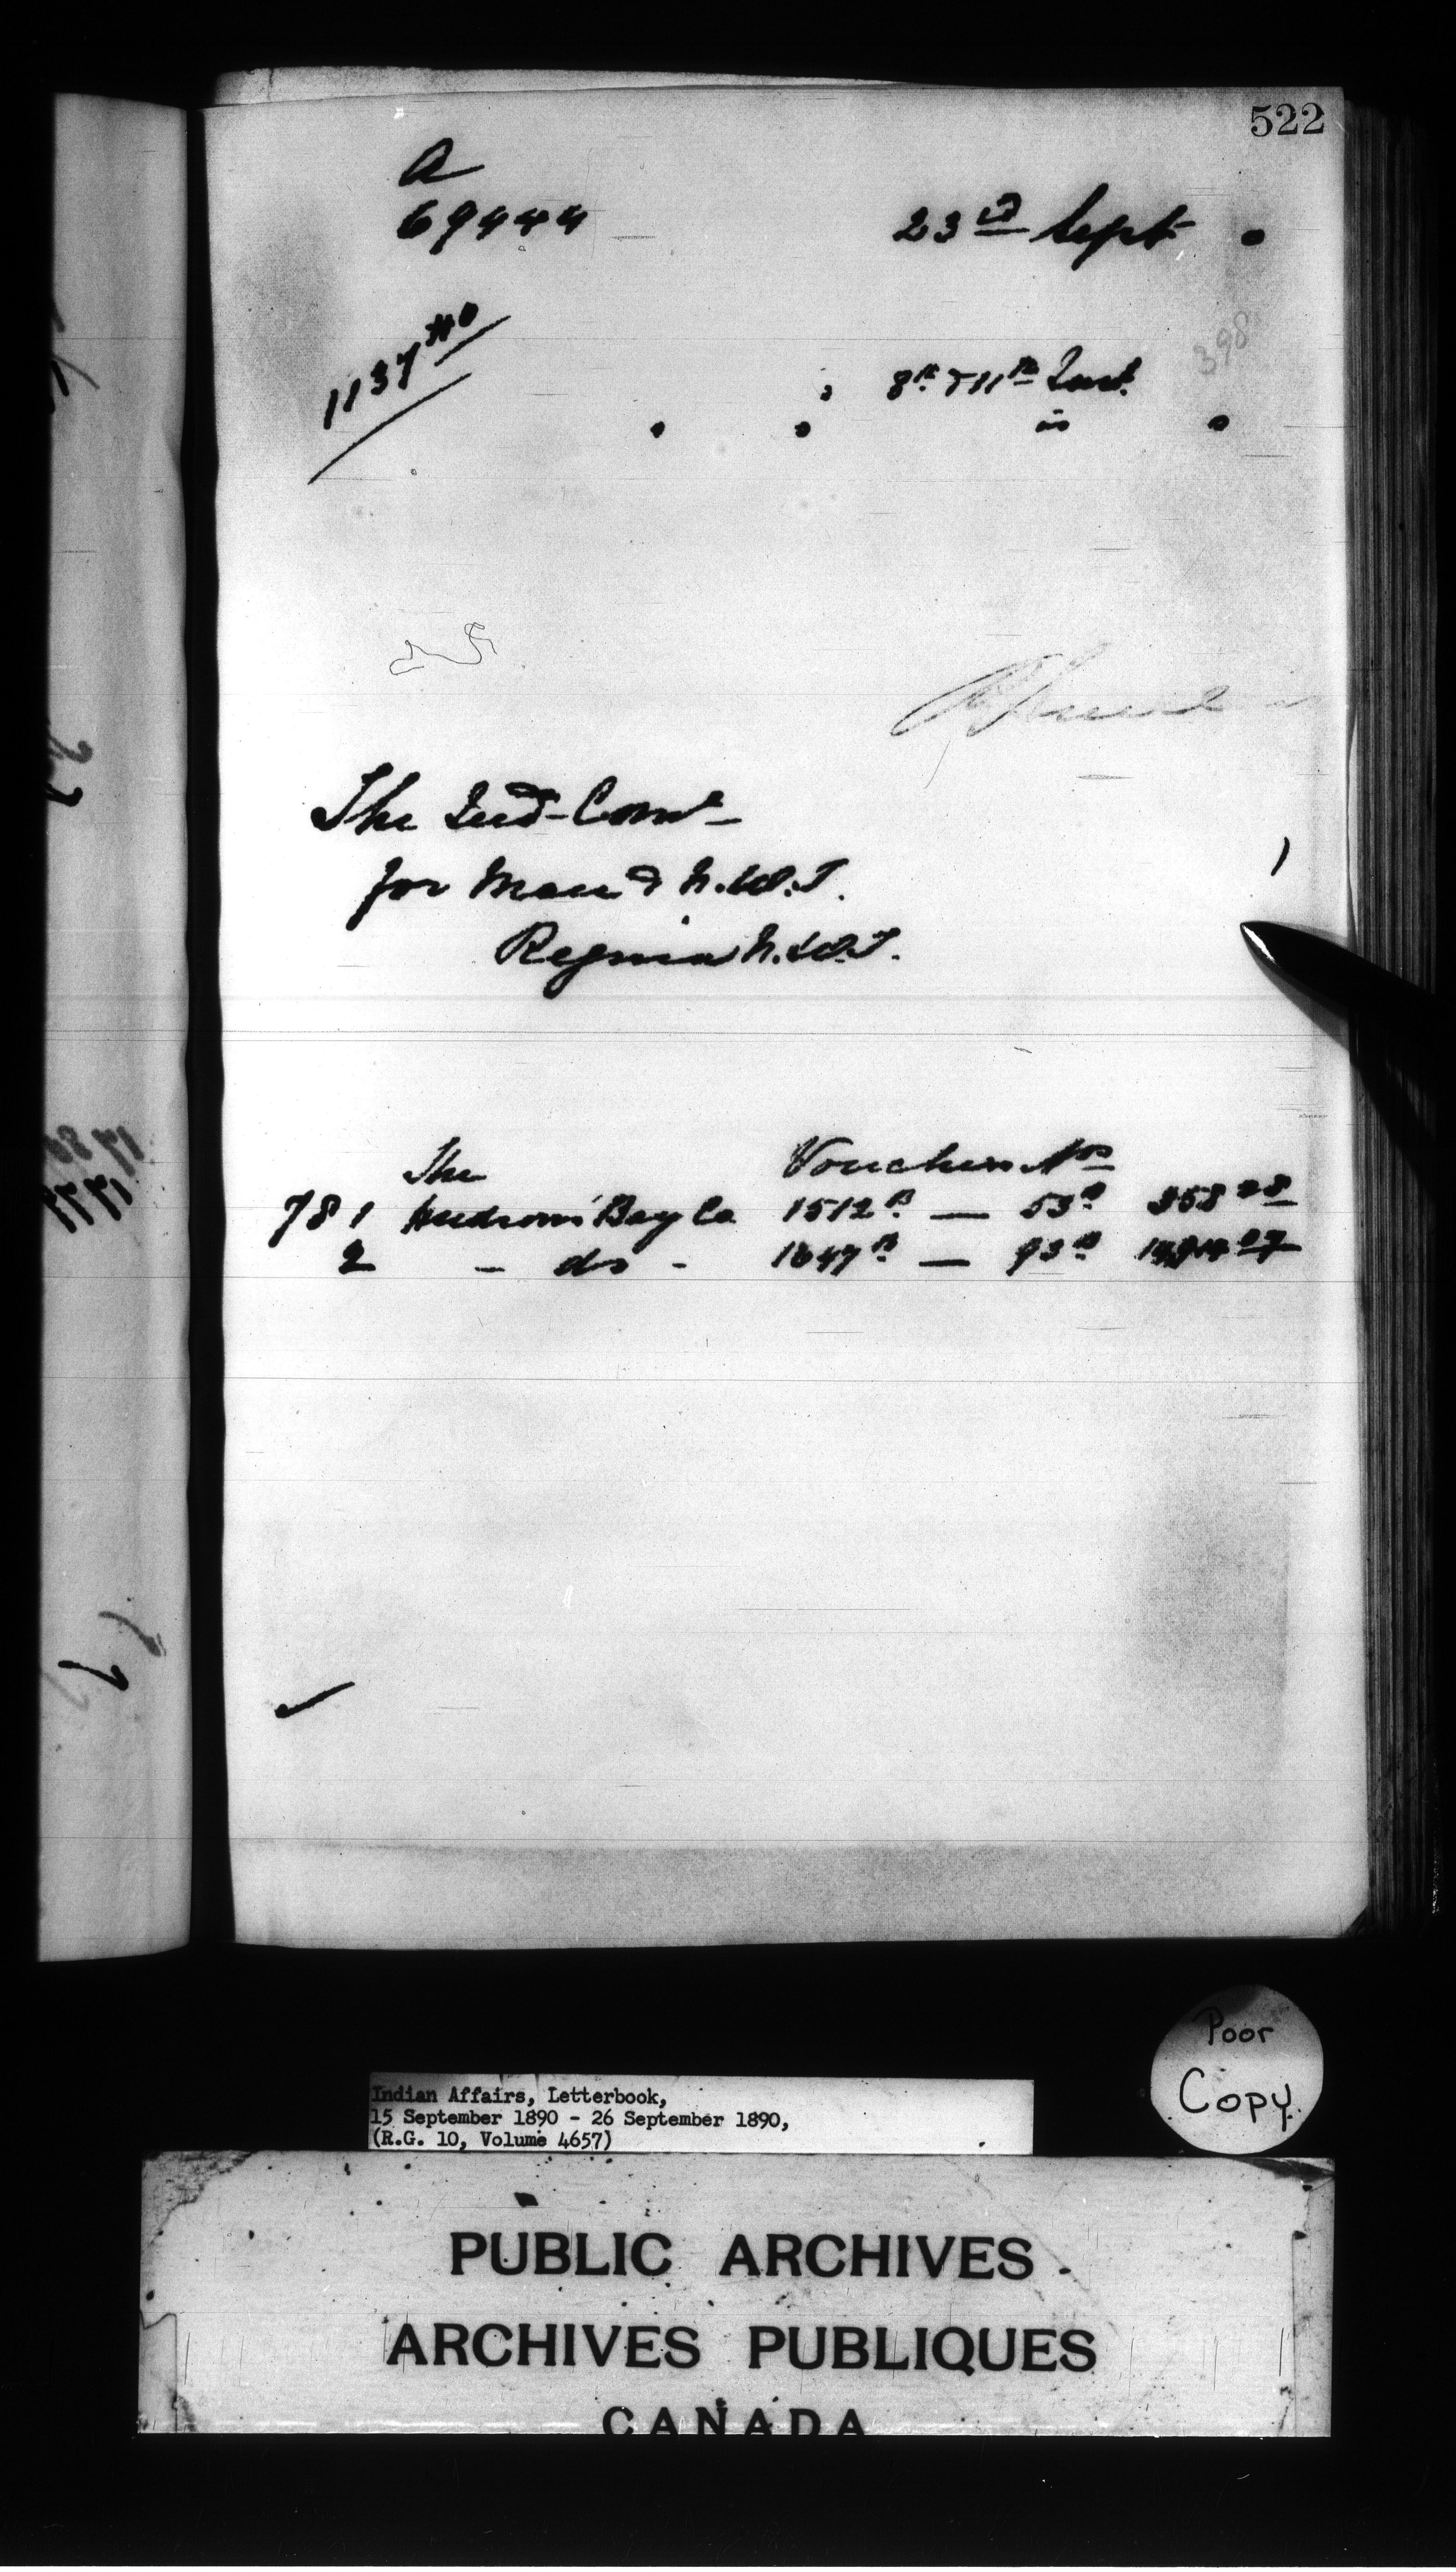 522
A
69444
23rd Sept
1137 HO
398
8th & 11th Inst.
is
The Ind-Comr
for Man & N.W.T.
Regina N.W.T.
The Vouchers Nos
781 Hudson's Bay Co 1512 B. — 53 B. 358 28
2 - do - 1647 B. — 93 B.
Poor
Copy.
Indian Affairs, Letterbook,
15 September 1890 - 26 September 1890,
(R.G. 10, Volume 4657)
PUBLIC ARCHIVES
ARCHIVES PUBLIQUES
CANADA